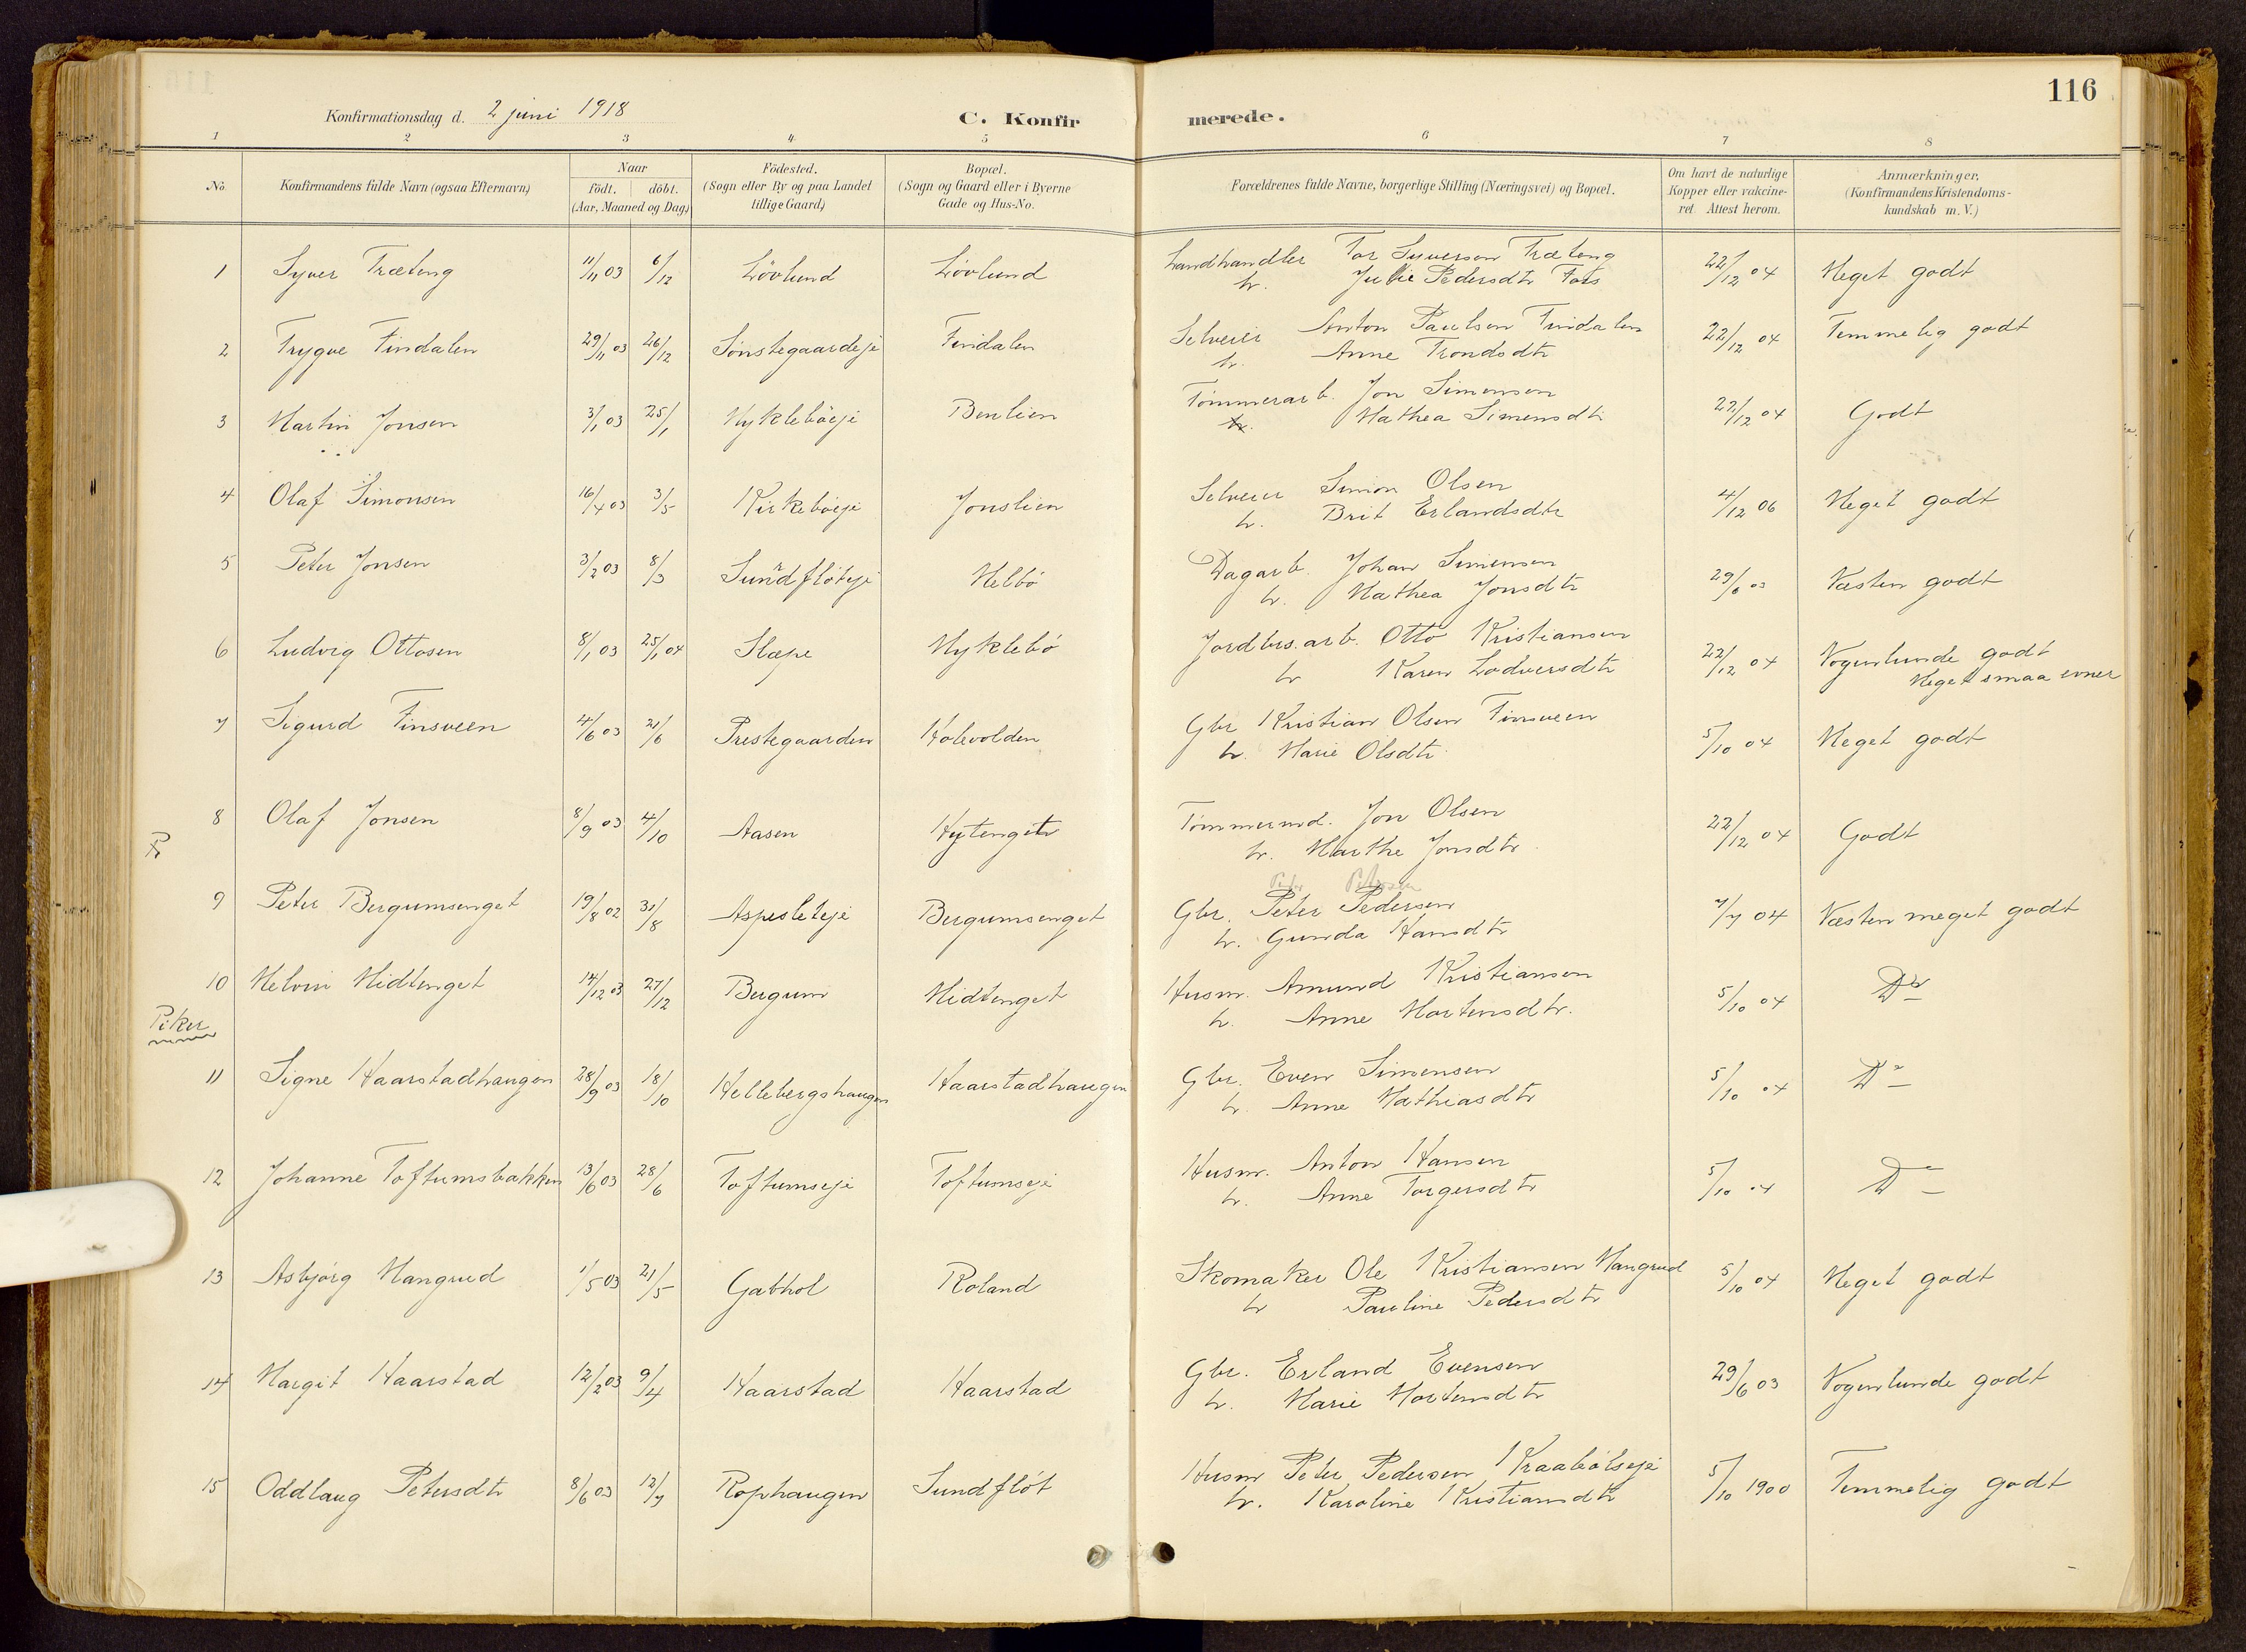 116
Konfirmationsdag d. 2 juni 1918
C. Konfirmerede.
1 2 3 4 5 6 7 8
No. Konfirmandens fulde Navn (ogsaa Efternavn) Naar födt. döbt. (Aar, Maaned og Dag) Födested. (Sogn eller By og paa Landet tillige Gaard) Bopæl. (Sogn og Gaard eller i Byerne Gade og Hus-No. Forældrenes fulde Navne, borgerlige Stilling (Næringsvei) og Bopæl. Om havt de naturlige Kopper eller vakcineret. Attest herom. Anmærkninger. (Konfirmandens Kristendomskundskab m. V.)
1 Syver Træteng 11/11 03 6/12 Lövlund Lövlund Landhandler Tor Syverson Træteng 22/12 04 Meget godt
h. Julie Pedersdtr Fors
2 Trygve Findalen 29/11 03 26/12 Sönstegaardeje Findalen Selveier Anton Paulsen Findalen 22/12 04 Temmelig godt
h. Anne Trondsdtr
3 Martin Jonsen 3/1 03 25/1 Mykleböeje Benlien Tömmerarb. Jon Simensen 22/12 04 Godt
h. Mathea Simensdtr
4 Olaf Simonsen 16/4 03 3/5 Kirkeböeje Jonslien Selveier Simon Olsen 4/12 06 Meget godt
h. Brit Erlandsdtr
5 Peter Jonsen 3/2 03 8/3 Sundflöteje Melbö Dagarb. Johan Simensen 29/6 03 Næsten godt
h. Mathea Jonsdtr
6 Ludvig Ottosen 8/1 03 25/1 04 Slæpe Myklebö Jordbrs.arb. Otto Kristiansen 22/12 04 Nogenlunde godt
h Karen Lodversdtr Meget smaa evner
7 Sigurd Finsveen 4/6 03 21/6 Prestegaarden Holevolden Gbr Kristian Olsen Finsveen 5/10 04 Meget godt
h. Marie Olsdtr
8 Olaf Jonsen 8/9 03 4/10 Aasen Hytenget Tömmermd. Jon Olsen 22/12 04 Godt
h. Marthe Jonsdtr
9 Peter Bergumsenget 19/8 02 31/8 Aspesleteje Bergumsenget Gbr. Peter Pedersen 7/7 04 Næsten meget godt
h. Gunda Hansdtr
10 Melvin Midtenget 14/12 03 27/12 Bergum Midtenget Husm. Amund Kristiansen 5/10 04 Do
h. Anne Mortensdtr.
Piker
11 Signe Haarstadhaugen 28/9 03 18/10 Hellebergshaugen Haarstadhaugen Gbr. Even Simensen 5/10 04 Do
h. Anne Mathiasdtr
12 Johanne Toftumsbakken 13/6 03 28/6 Toftumseje Toftumseje Husm. Anton Hansen 5/10 04 Do
h. Anne Torgersdtr
13 Asbjörg Mangrud 1/5 03 21/5 Gabhol Roland Skomaker Ole Kristiansen Mangrud 5/10 04 Meget godt
h Pauline Pedersdtr
14 Margit Haarstad 12/2 03 9/4 Haarstad Haarstad Gbr. Erland Evensen 29/6 03 Nogenlunde godt
h. Marie Mortensdtr
15 Oddlaug Petersdtr 8/6 03 12/7 Rophaugen Sundflöt Husm Peter Pedersen Kraabölseje 5/10 1900 Temmelig godt
h. Karoline Kristiansdtr